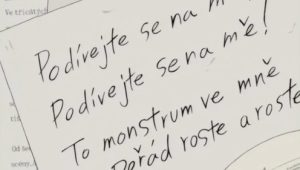 Ve třicátých
Podívejte se na mě!
Podívejte se na mě!
To monstrum ve mně
Pořád roste a roste
Od
scény.